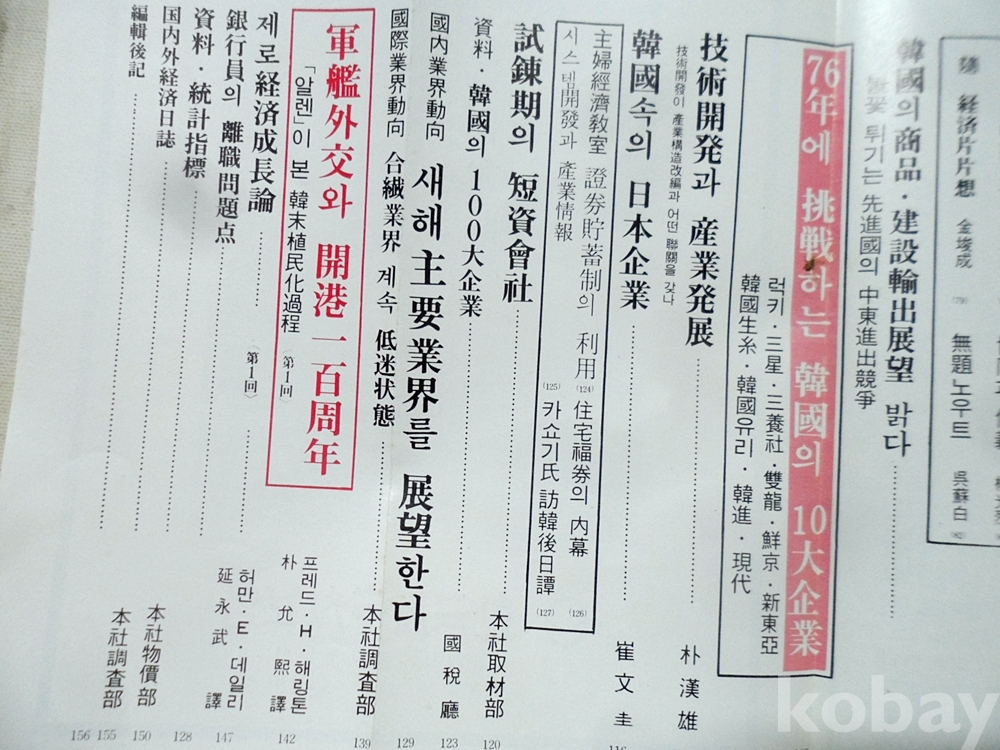 隨 経済片片想 金埈成 (79) 無題 노우트 吳蘇白 (82)
韓國의 商品·建設輸出展望 밝다
불꽃 튀기는 先進國의 中東進出競爭
76年에 挑戦하는 韓國의 10大企業
럭키·三星·三養社·雙龍·鮮京·新東亞
韓國生糸·韓國유리·韓進·現代
技術開発과 産業発展 朴漢雄
技術開發이 産業構造改編과 어떤 聯關을 갖나
韓國속의 日本企業 崔文圭 116
主婦經濟教室 證券貯蓄制의 利用 (124) 住宅福券의 内幕 (126)
시스템開發과 産業情報 (125) 카쇼기氏 訪韓後日譚 (127)
試錬期의 短資會社 本社取材部 120
資料·韓國의 100大企業 國稅廳 123
國内業界動向 새해 主要業界를 展望한다 129
國際業界動向 合繊業界 계속 低迷状態 本社調査部 139
軍艦外交와 開港一百周年
「알렌」이 본 韓末植民化過程 〈第1回〉 프레드·H·해링톤 朴允熙 譯 142
제로経済成長論 〈第1回〉 허만·E·데일리 延永武 譯 147
銀行員의 離職問題点 128
資料·統計指標 本社物價部 150
国内外経済日誌 本社調査部 155
編輯後記 156
kobay